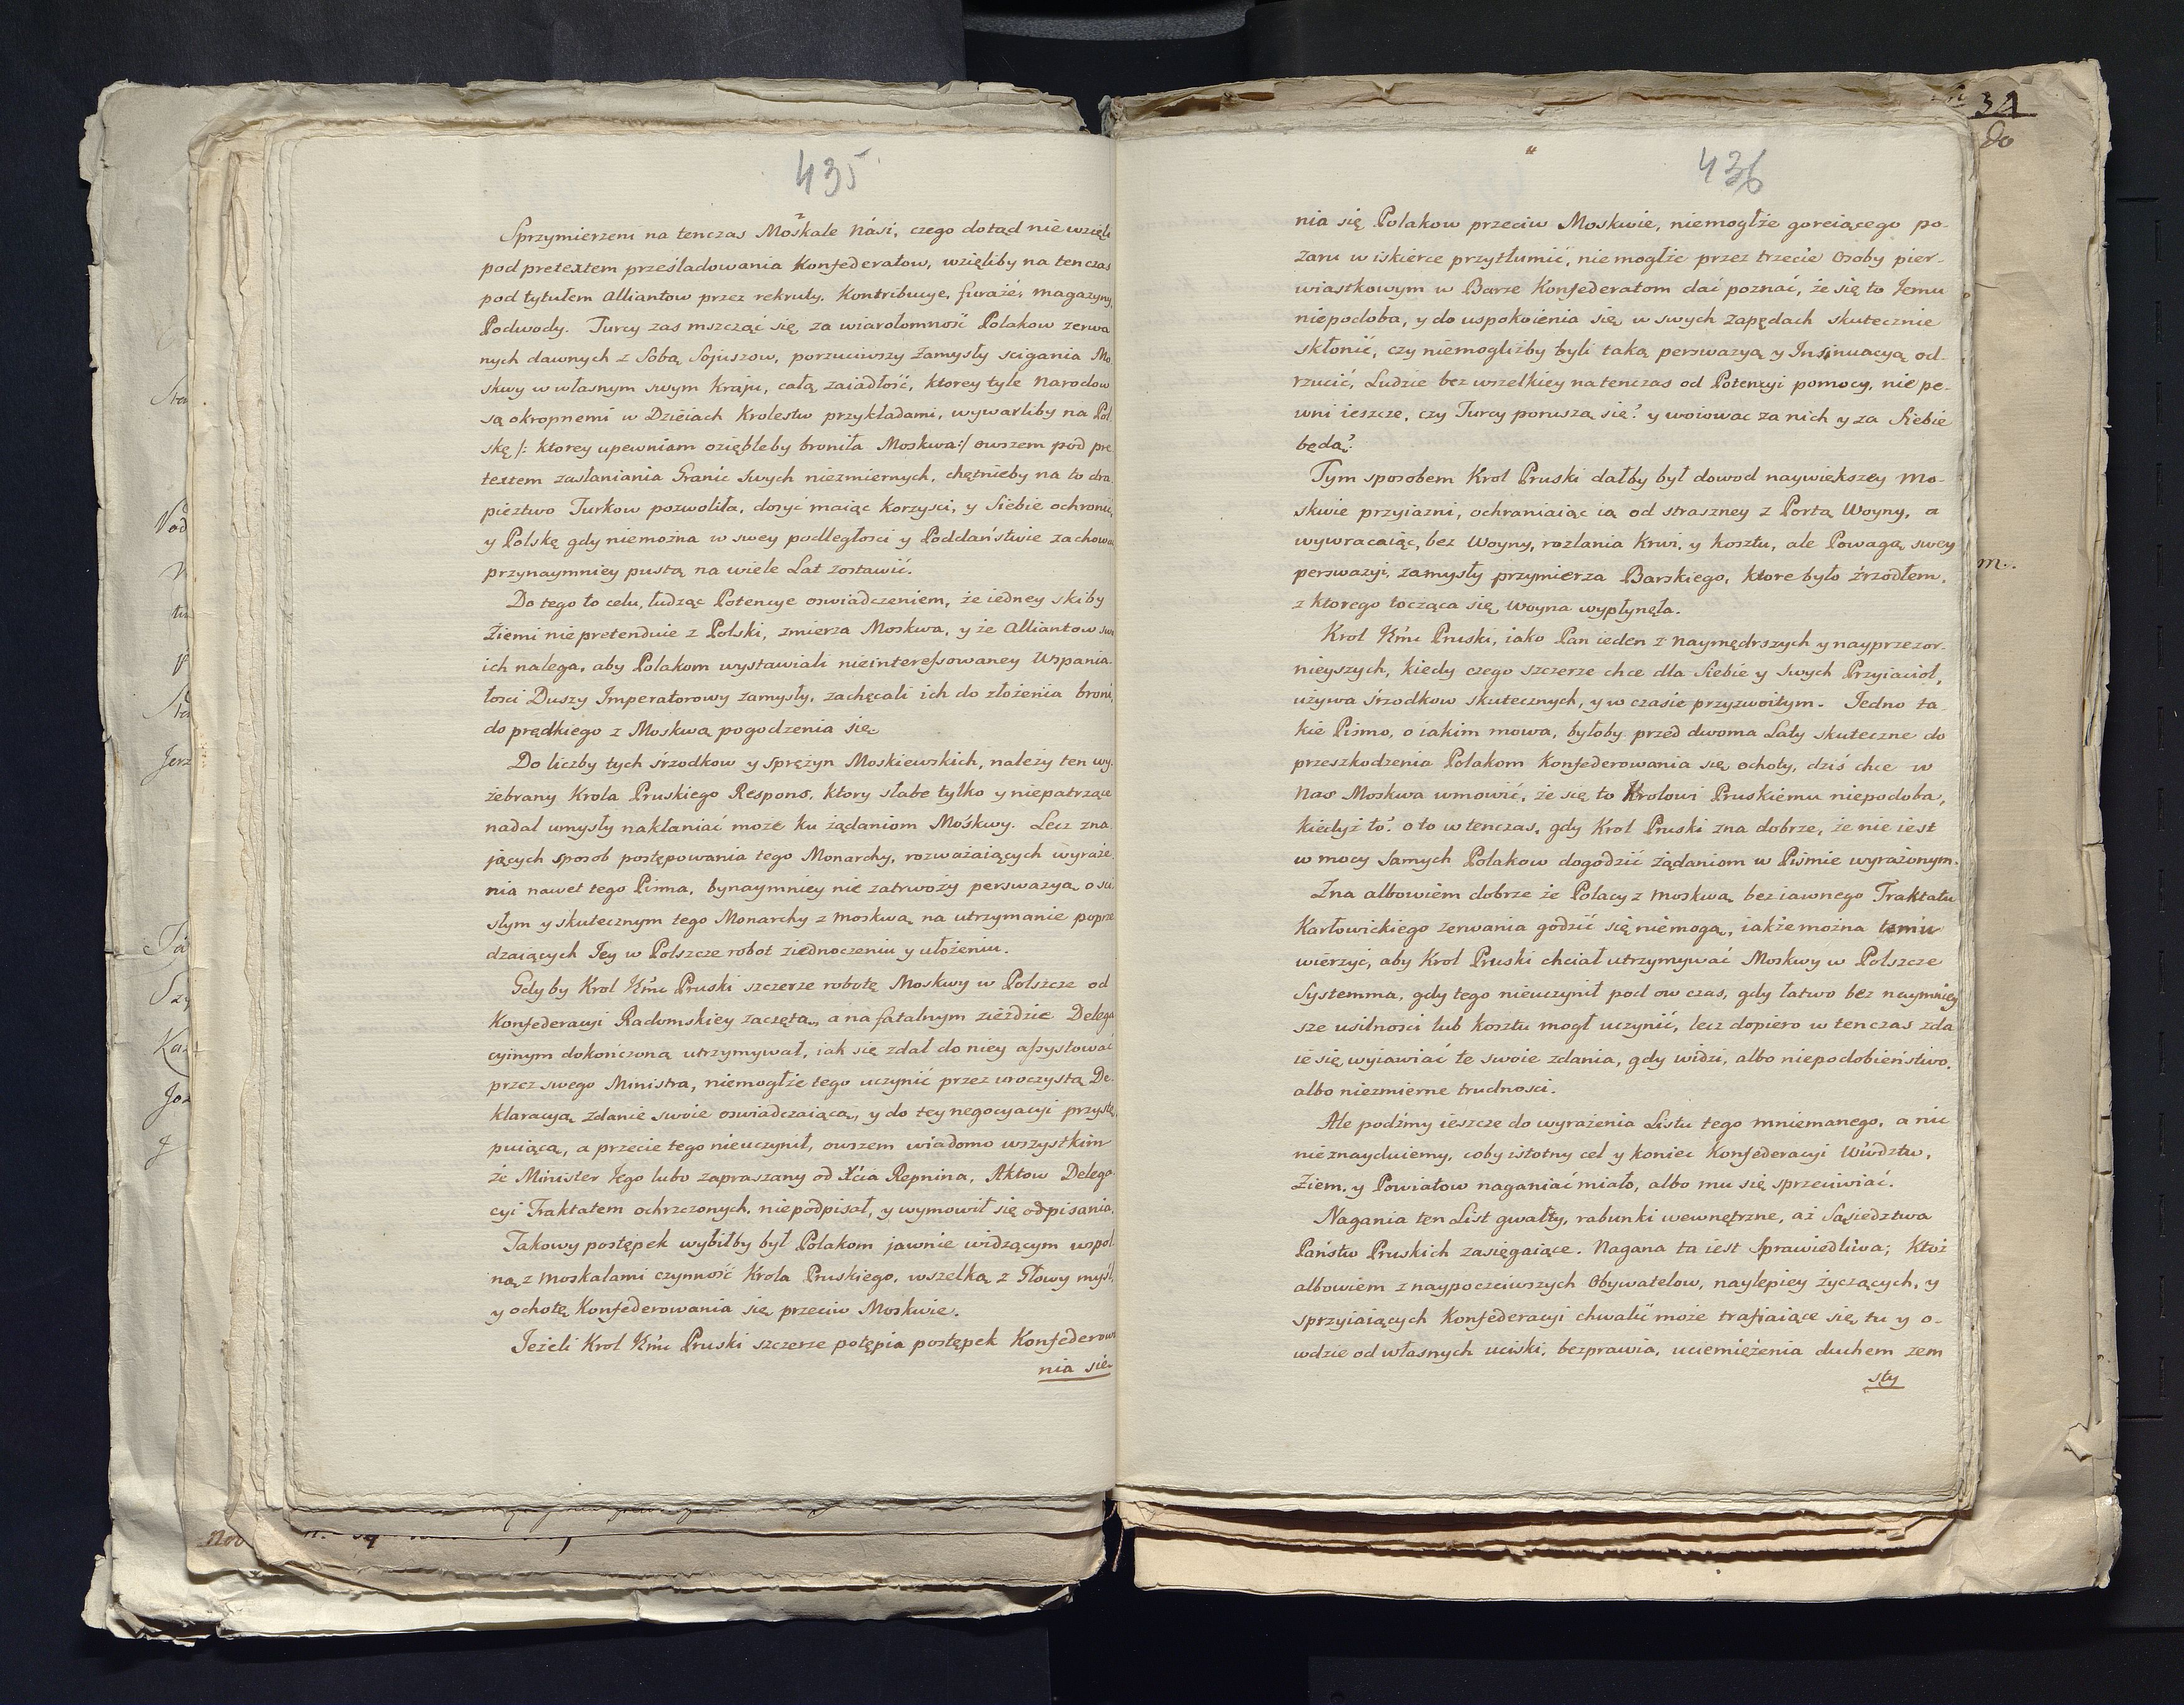 435
Sprzymierzeni na tenczas Moskale Nási, czego dotąd nie wzięli
pod pretextem prześladowania Konfederatow, wzięliby na ten czas
pod tytułem Alliantow przez rekruty, Kontribucye, furaże, magazyny,
Podwody. Turcy zas mszcząć się za wiarołomność Polakow zerwa
nych dawnych z Sobą Sojuszow, porzuciwszy Zamysły scigania Mo
skwy w własnym swym Kraju, całą zaiadłość, ktorey tyle Narodow
są okropnemi w Dzieiach Krolestw przykładami, wywarliby na Pol
skę /: ktorey upewniam oziębleby broniła Moskwa :/ owszem pod pre
textem zasłaniania Granic Swych niezmiernych, chętnieby na to dra
pieztwo Turkow pozwoliła, dosyć maiąc Korzysci, y Siebie ochronić,
y Polskę gdy niemożna w swey podległosci y Poddaństwie zachowa
przynaymniey pustą na wiele Lat zostawić.
Do tego to celu, łudząc Potencye oswiadczeniem, że iedney skiby
Ziemi niepretenduie z Polski, zmierza Moskwa, y że Alliantow swo
ich nalega, aby Polakom wystawiali nieinteressowaney Wspania
łosci Duszy Imperatorowy zamysły, zachęcali ich do złożenia broni,
do prędkiego z Moskwą pogodzenia się.
Do liczby tych śrzodkow y sprężyn Moskiewskich, należy ten wy
żebrany Krola Pruskiego Respons, ktory słabe tylko y niepatrzące
nadal umysły nakłaniać może ku żądaniom Mośkwy. Lecz zna
jących sposob postępowania tego Monarchy, rozważaiących wyraże
nia nawet tego Pisma, bynaymniey nie zatrwoży perswazya, o ści
słym y skutecznym tego Monarchy z Moskwą na utrzymanie poprze
dzaiących Jey w Polszcze robot ziednoczeniu y ułożeniu.
Gdyby Krol Jmć Pruski szczerze robotę Moskwy w Polszcze od
Konfederacyi Radomskiey zaczętą, a na fatalnym zieździe Delega
cyinym dokończoną utrzymywał, iak się zdał do niey assystować
przez swego Ministra, niemogłże tego uczynić przez uroczystą De-
klaracyą zdanie swoie oswiadczaiącą, y do tey negocyacyi przystę
puiącą, a przecie tego nieuczynił, owszem wiadomo wszystkim
że Minister Jego lubo zapraszany od Xcia Repnina, Aktow Delega
cyi Traktatem ochrzczonych, niepodpisał, y wymowił się odpisania.
Takowy postępek wybiłby był Polakom jawnie widzącym wspol
ną z Moskalami czynność Krola Pruskiego, wszelką z Głowy myśl,
y ochotę Konfederowania się przeciw Moskwie.
Jeżeli Krol Jmć Pruski szczerze potępia postępek Konfederowa
nia się
436
nia się Polakow przeciw Moskwie, niemogłże goreiącego po-
zaru w iskierce przytłumić, niemogłże przez trzecie Osoby pier-
wiastkowym w Barze Konfederatom dać poznać, że się to Jemu
niepodoba, y do uspokoienia się w swych Zapędach skutecznie
skłonić, czy niemogliżby byli taką perswazyą y Insinuacyą od-
rzucić, Ludzie bez wszelkiey natenczas od Potencyi pomocy, niepe-
wni ieszcze, czy Turcy poruszą się? y woiowac za nich y za Siebie
będą?
Tym sposobem Krol Pruski dałby był dowod naywiekszey Mo-
skwie przyiazni, ochraniaiąc ią od straszney z Portą Woyny, a
wywracaiąc, bez Woyny, rozlania Krwi, y Kosztu, ale Powagą swey
perswazyi, zamysły przymierza Barskiego, ktore było źrzodłem,
z ktorego tocząca się Woyna wypłynęła.
Krol Jmć Pruski, iako Pan ieden z naymędrszych y nayprzezor-
nieyszych, kiedy czego szczerze chce dla Siebie y Swych Przyiacioł,
używa śrzodkow skutecznych, y w czasie przyzwoitym. Jedno ta-
kie Pismo, o iakim mowa, byłoby przed dwoma Laty skuteczne do
przeszkodzenia Polakom Konfederowania się ochoty, dziś chce w
Nas Moskwa wmowić, że się to Krolowi Pruskiemu niepodoba,
kiedyż to? oto w tenczas, gdy Krol Pruski zna dobrze, że nie iest
w mocy Samych Polakow dogodzić żądaniom w Piśmie wyrażonym.
Zna albowiem dobrze że Polacy z Moskwą bez iawnego Traktatu
Karłowickiego zerwania godzić się niemogą, iakże można temu
wierzyć, aby Krol Pruski chciał utrzymywać Moskwy w Polszcze
Systemma, gdy tego nieuczynił pod ow czas, gdy łatwo bez naymniey
sze usilnosci lub Kosztu mogł uczynić, lecz dopiero w tenczas zda
ie się wyiawiać te swoie zdania, gdy widzi, albo niepodobieństwo,
albo niezmierne trudnosci.
Ale podźmy ieszcze do wyrażenia Listu tego mniemanego, a nic
nieznayduiemy, coby istotny cel y koniec Konfederacyi Wwdztw,
Ziem, y Powiatow naganiać miało, albo mu się sprzeciwiać.
Nagania ten List gwałty, rabunki wewnętrzne, aż Sąsiedztwa
Państw Pruskich zasięgaiące. Nagana ta iest Sprawiedliwa; Ktoż
albowiem z naypoczciwszych Obywatelow, naylepiey życzących, y
sprzyiaiących Konfederacyi chwalić może trafiaiące się tu y o-
wdzie od własnych uciski, bezprawia, uciemiężenia duchem zem
sty
34
do
m.
Nod